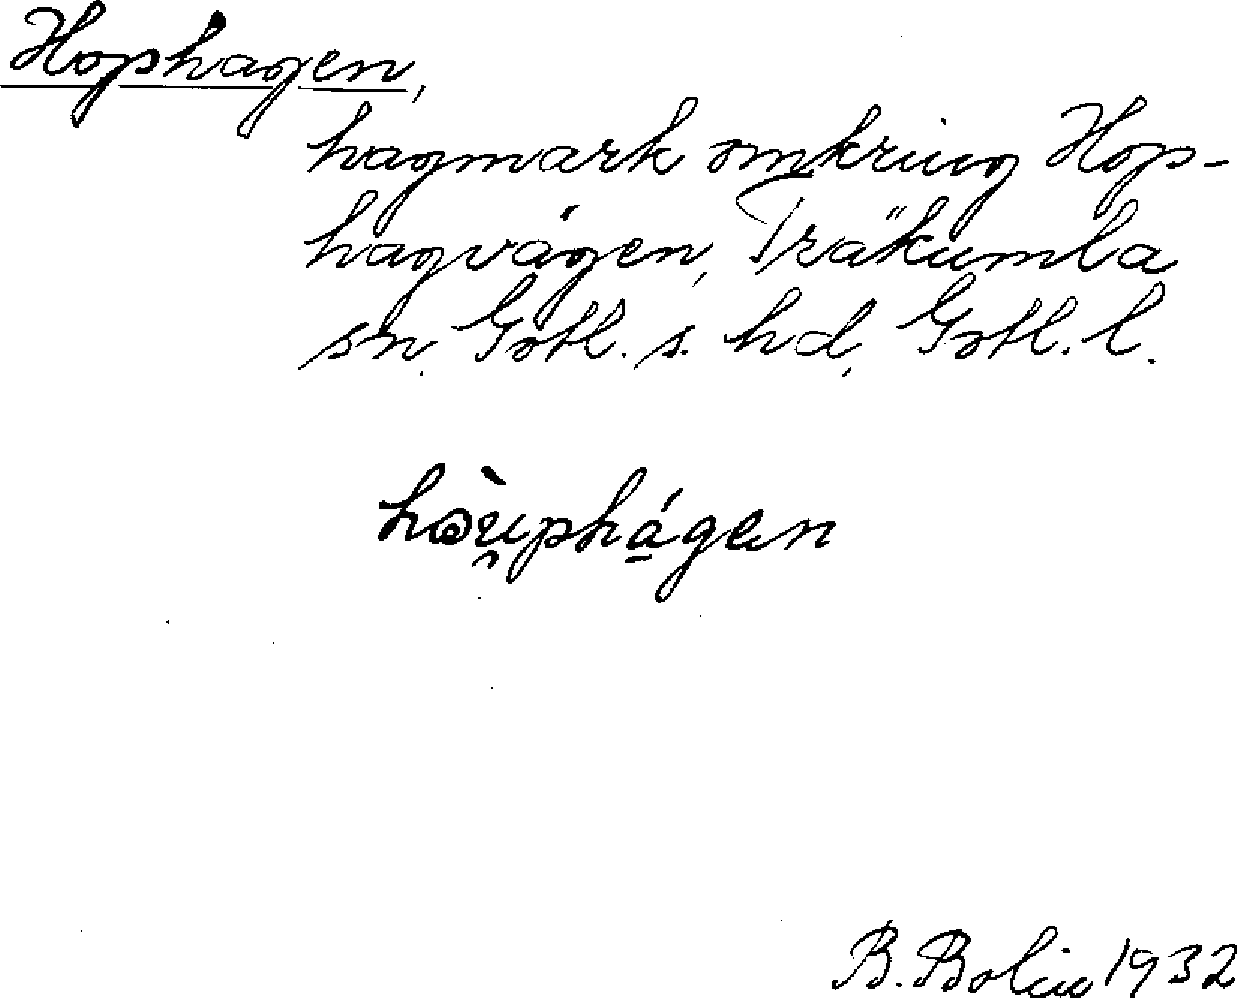 Hophagen,
hagmark omkring Hop-
hagvägen, Träkumla
sn. Gotl. s. hd, Gotl. l.
hòu̯phá̱gen
B. Bolin 1932